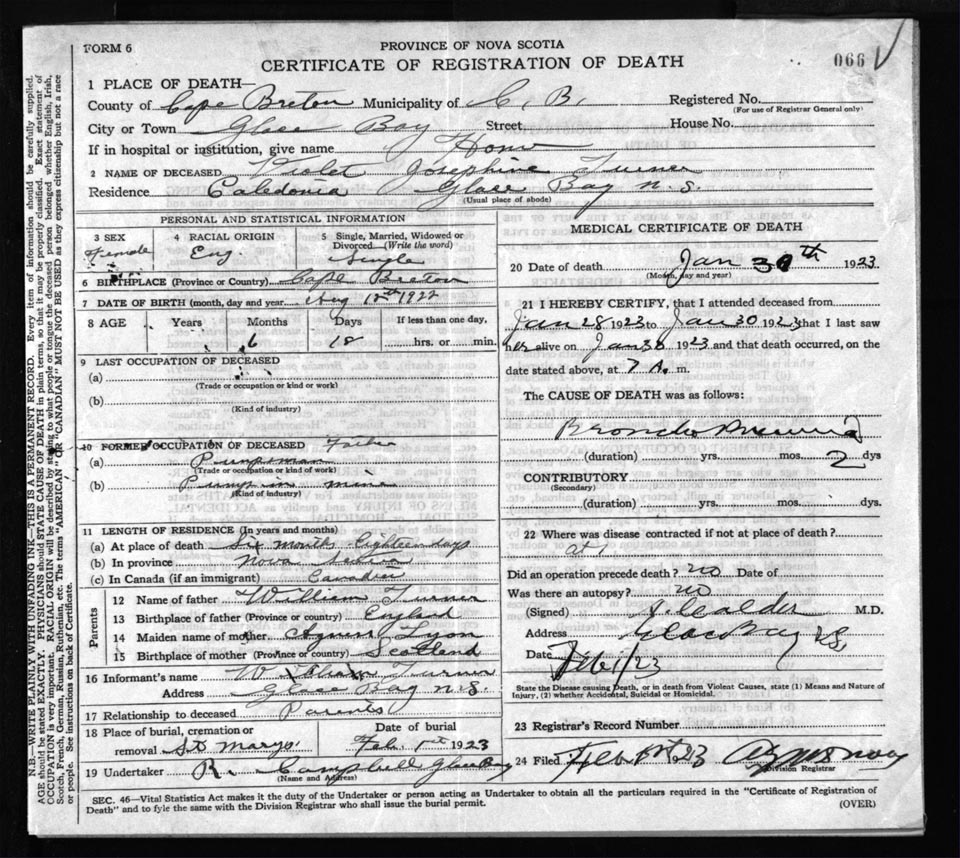 FORM 6
PROVINCE OF NOVA SCOTIA
CERTIFICATE OF REGISTRATION OF DEATH
066
1 PLACE OF DEATH—
County of Cape Breton Municipality of C. B. Registered No.
(For use of Registrar General only)
City or Town Glace Bay Street House No.
If in hospital or institution, give name Home
2 NAME OF DECEASED Violet Josephine Turner
Residence Caledonia Glace Bay N.S.
(Usual place of abode)
PERSONAL AND STATISTICAL INFORMATION
3 SEX 4 RACIAL ORIGIN 5 Single, Married, Widowed or
Divorced (Write the word)
Female Eng. Single
6 BIRTHPLACE (Province or Country) Cape Breton
7 DATE OF BIRTH (month, day and year) Aug 12th 1922
8 AGE Years Months Days If less than one day,
6 18 hrs. or min.
9 LAST OCCUPATION OF DECEASED
(a)
(Trade or occupation or kind or work)
(b)
(Kind of industry)
10 FORMER OCCUPATION OF DECEASED Father
(a) Pumpman
(Trade or occupation or kind of work)
(b) Pump in mine
(Kind of industry)
11 LENGTH OF RESIDENCE (In years and months)
(a) At place of death Six months Eighteen days
(b) In province Nova Scotia
(c) In Canada (if an immigrant)
Parents
12 Name of father William Turner
13 Birthplace of father (Province or country) England
14 Maiden name of mother Agnes Lyon
15 Birthplace of mother (Province or country) Scotland
16 Informant's name William Turner
Address Glace Bay N.S.
17 Relationship to deceased Parents
18 Place of burial, cremation or Date of burial
removal St Marys Feb. 1st 1923
19 Undertaker R. Campbell Glace Bay
(Name and Address)
MEDICAL CERTIFICATE OF DEATH
20 Date of death Jan 30th 1923
(Month, day and year)
21 I HEREBY CERTIFY, that I attended deceased from
Jan 28 1923 to Jan 30 1923 that I last saw
her alive on Jan 30 1923 and that death occurred, on the
date stated above, at 7 A. m.
The CAUSE OF DEATH was as follows:
Broncho Pneumonia
(duration) yrs. mos. 2 dys
CONTRIBUTORY
(Secondary)
(duration) yrs. mos. dys.
22 Where was disease contracted if not at place of death?
at
Did an operation precede death? no Date of
Was there an autopsy? no
(Signed) J. Calder M.D.
Address Glace Bay N.S.
Date Feb 1/23
State the Disease causing Death, or in death from Violent Causes, state (1) Means and Nature of
Injury, (2) whether Accidental, Suicidal or Homicidal.
23 Registrar's Record Number
24 Filed Feb 1st 23
Division Registrar
SEC. 46—Vital Statistics Act makes it the duty of the Undertaker or person acting as Undertaker to obtain all the particulars required in the "Certificate of Registration of
Death" and to fyle the same with the Division Registrar who shall issue the burial permit.
(OVER)
N.B. WRITE PLAINLY WITH UNFADING INK—THIS IS A PERMANENT RECORD. Every item of information should be carefully supplied.
AGE should be stated EXACTLY. PHYSICIANS should STATE CAUSE OF DEATH in plain terms, so that it may be properly classified. Exact statement of
OCCUPATION is very important. RACIAL ORIGIN will be described by stating to what people or tongue the deceased person belonged whether English, Irish,
Scotch, French, German, Russian, Ruthenian, etc. The terms "AMERICAN" OR "CANADIAN" MUST NOT BE USED as they express citizenship but not a race
or people. See instructions on back of Certificate.